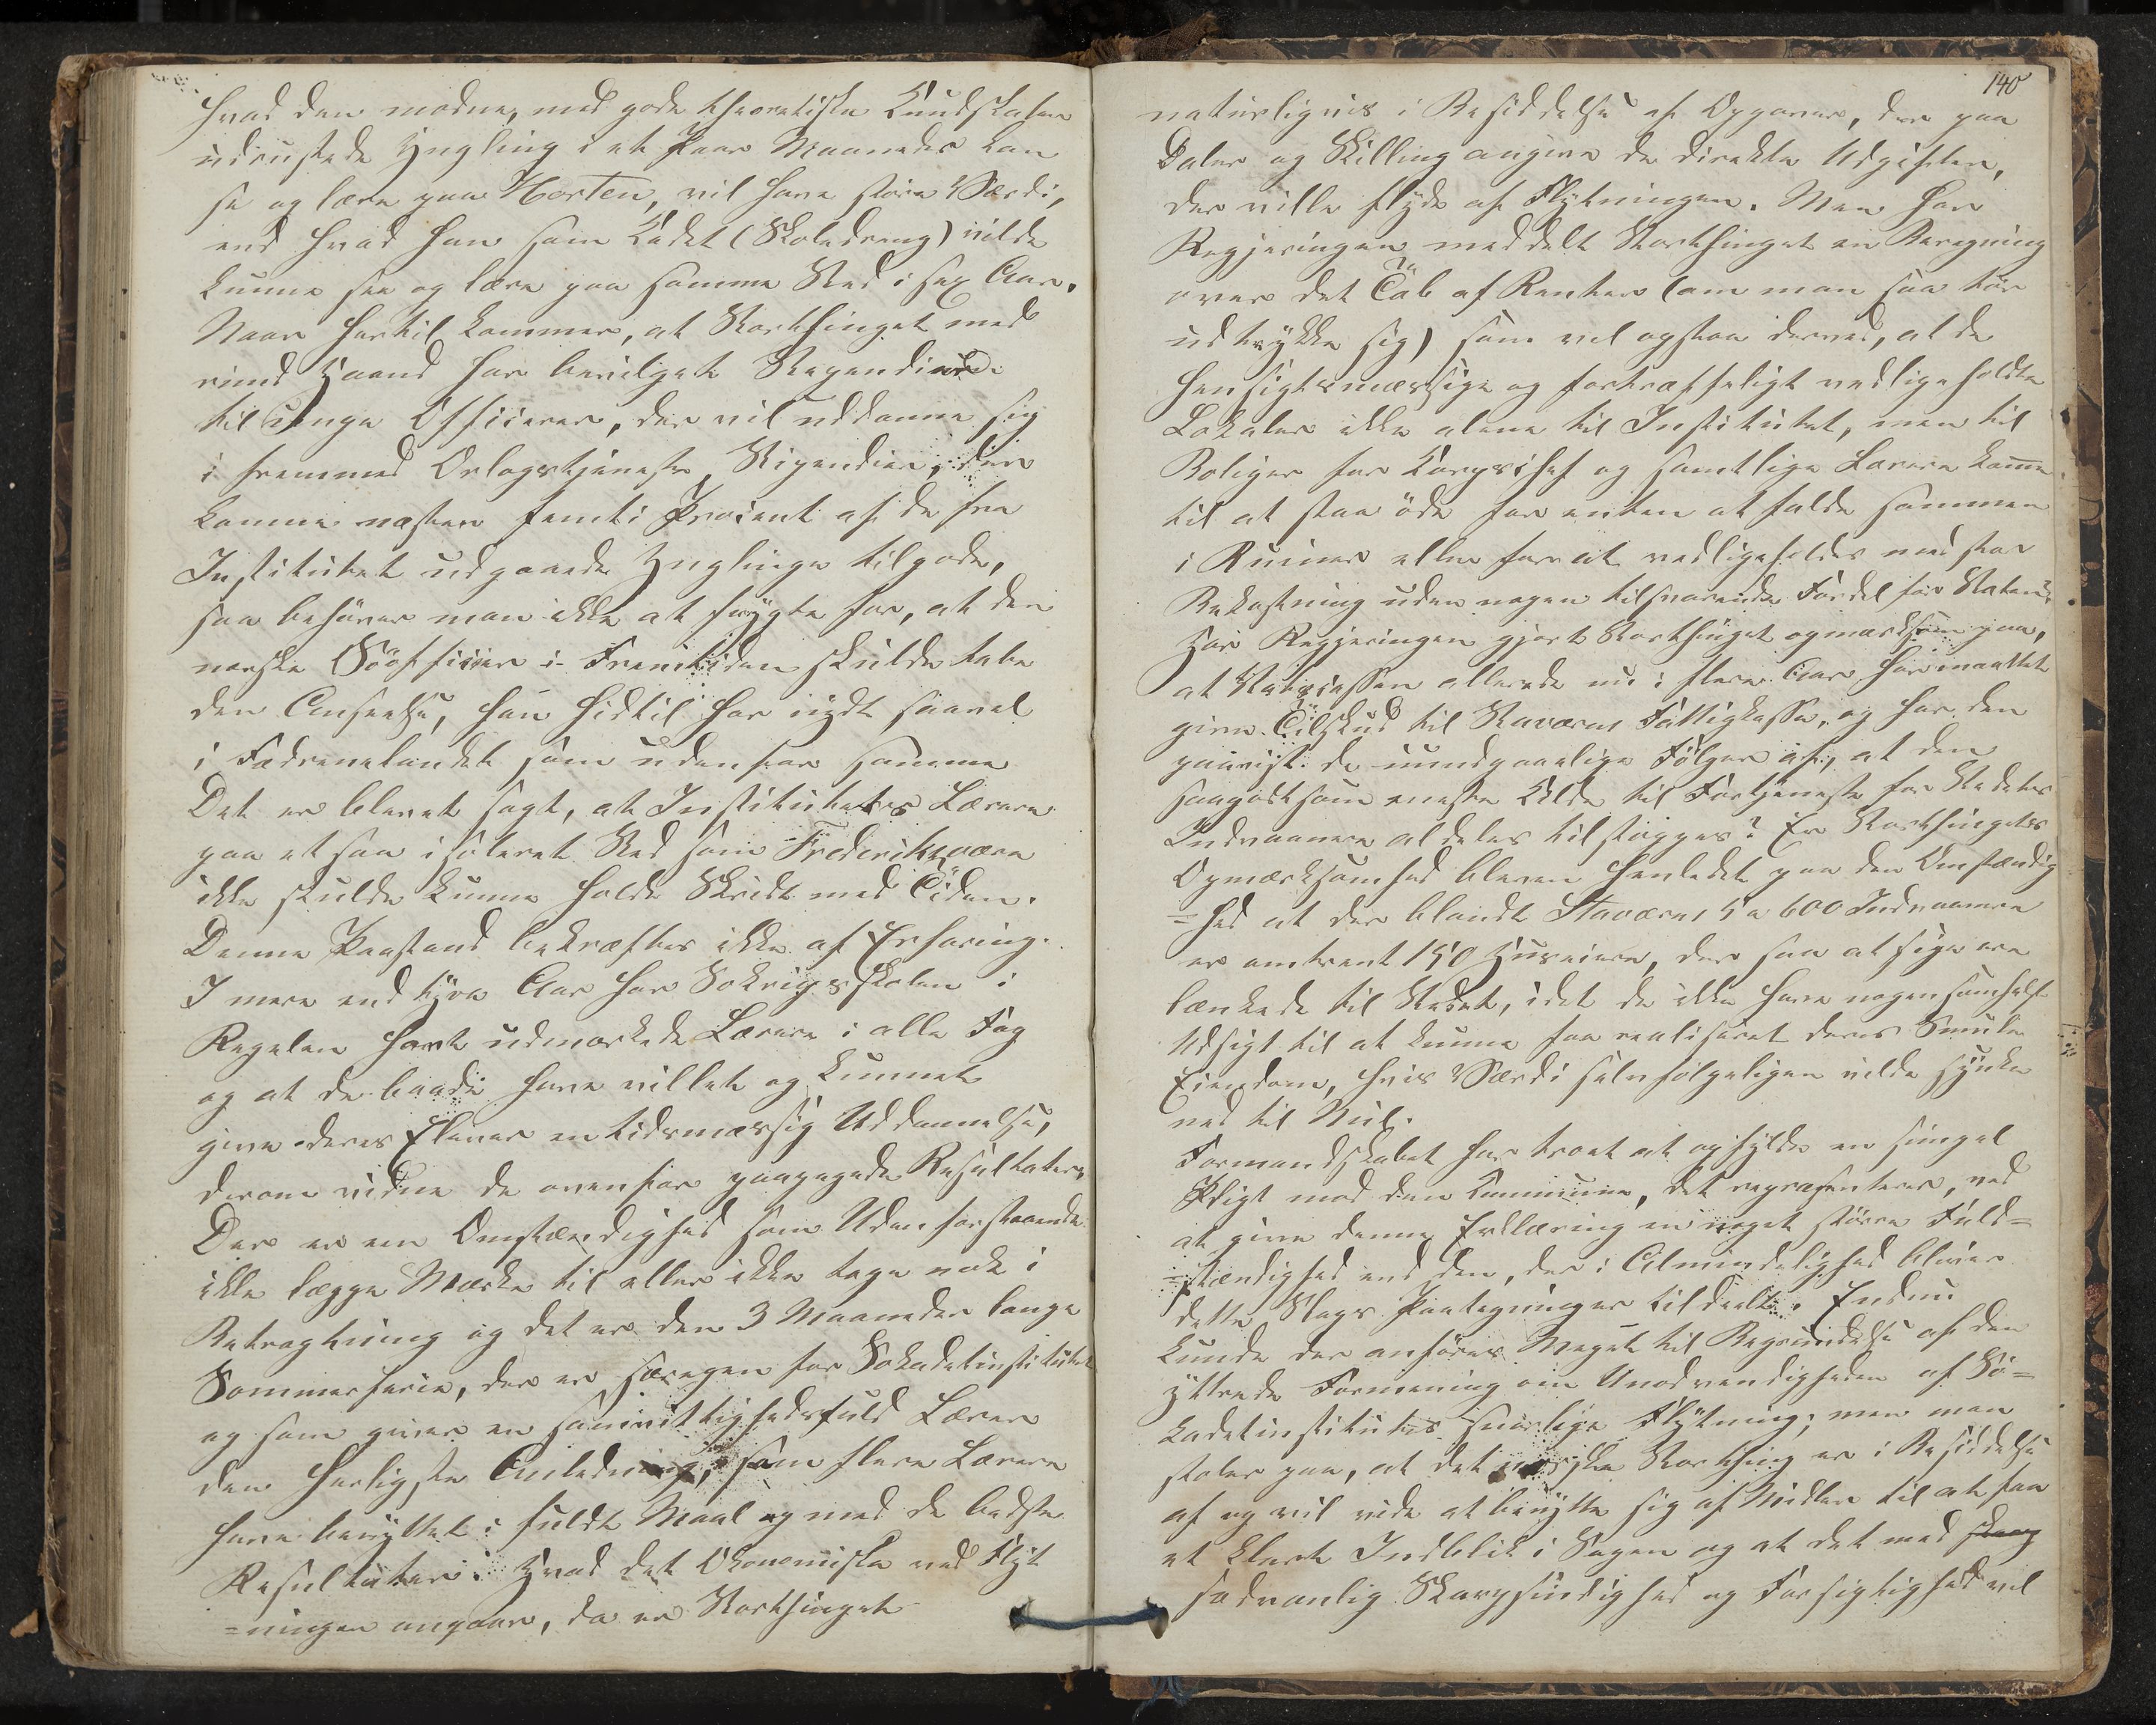 hvad den modne, med gode theoretiske Kundskaber
udrustede Yngling i et Paar Maaneder kan
se og lære paa Horten, vil have større Værdi,
end hvad han som Kadet (Skoledreng) vilde
kunne see og lære paa samme Sted i sex Aar.
Naar hertil kommer, at Storthinget med
rund Haand har bevilget Stipendier
til unge Officerer, der vil uddanne sig
i fremmed Orlogstjeneste, Stipendier, der
komme næsten femti Procent af de fra
Institutet udgaaede Ynglinge tilgode,
saa behøver man ikke at frygte for, at den
norske Søofficier i Fremtiden skulde tabe
den Anseelse, han hidtil har nydt saavel
i Fædrenelandet som udenfor samme
Det er blevet sagt, at Institutets Lærere
paa et saa isoleret Sted som Frederiksværn
ikke skulde kunne holde Skridt med Tiden.
Denne Paastand bekræftes ikke af Erfaring.
I mere end tyve Aar har Søkrigsskolen i
Regelen havt udmærkede Lærere i alle Fag
og at de baade have villet og kunnet
give deres Elever en tidsmæssig Uddannelse,
derom vidne de ovenfor paapegede Resultater.
Der er en Omstændighed som Udenforstaaende
ikke lægge Mærke til eller ikke tage nok i
Betragtning og det er den 3 Maaneder lange
Sommerferie, der er særegen for Søkadetinstitutet
og som giver en samvittighedsfuld Lærer
den herligste Anledning, som flere Lærere
have benyttet i fuldt Maal og med de bedste
Resultater. Hvad det Økonomiske ved Flyt
=ningen angaar, da er Storthinget
140
naturligvis i Besiddelse af Opgaver, der paa
Daler og Skilling angive de direkte Udgifter,
der ville flyde af Flytningen. Men har
Regjeringen meddelt Storthinget en Beregning
over det Tab af Renter (om man saa tør
udtrykke sig) som vil opstaa derved, at de
hensigtsmæssige og fortræffeligt vedligeholdte
Lokaler ikke alene til Institutet, men til
Boliger for Korpschef og samtlige Lærere komme
til at staa øde for enten at falde sammen
i Ruiner eller for at vedligeholdes med stor
Bekostning uden nogen tilsvarende Fordel for Staten?
Har Regjeringen gjort Storthinget opmærksom paa,
at Statscassen allerede nu i flere Aar har maattet
give Tilskud til Staværns Fattigkasse, og har den
paavist de uundgaaelige Følger af, at den
saagodtsom eneste Kilde til Fortjeneste for Stedets
Indvaanere aldeles tilstoppes? Er Storthingets
Opmærksomhed bleven henledet paa den Omstændig
=hed at der blandt Staværns 5 a 600 Indvaanere
er omtrent 150 Huseiere, der saa at sige ere
lænkede til Stedet, idet de ikke have nogensomhelst
Udsigt til at kunne faa realiseret deres Smule
Eiendom, hvis Værdi selvfølgeligen vilde synke
ned til Nul.
Formandskabet har troet at opfylde en simpel
Pligt mod den Kommune, det repræsenterer, ved
at give denne Erklæring en noget større Fuld=
=stændighed end den, der i Almindelighed bliver
dette Slags Paategninger tildeelt. Endnu
kunde der anføres Meget til Begrundelse af den
yttrede Formening om Unødvendigheden af Sø=
kadetinstitutets snarlige Flytning; men man
stoler paa, at det norske Storthing er i Besiddelse
af og vil vide at benytte sig af Midler til at faa
et klart Indblik i Sagen og at det med skarp
sædvanlig Skarpsindighed og Forsigtighed vil